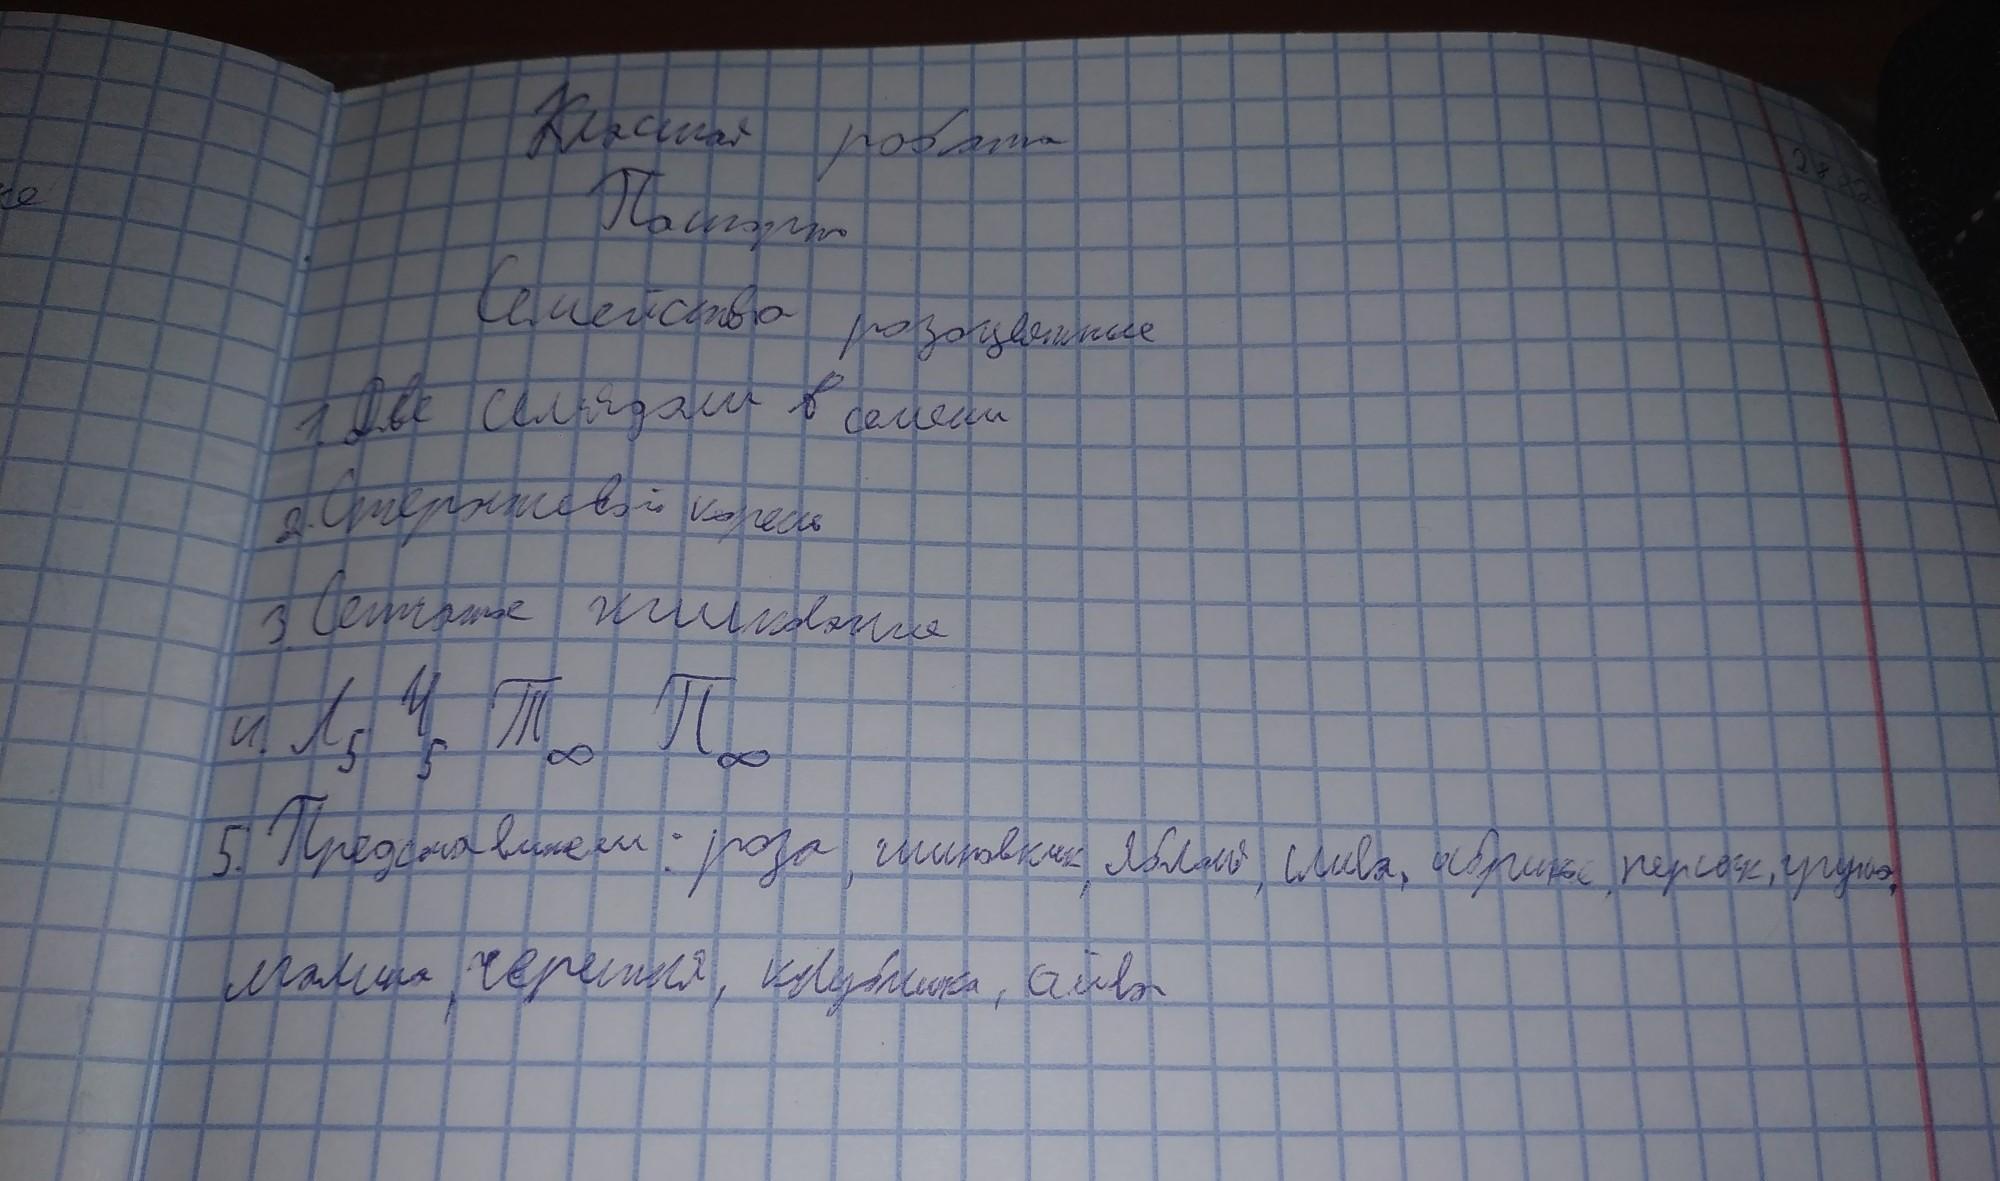 Класная робота
Паспорт
Семейство розоцветные
1. Две семядоли в семени
2. Стержневой корень
3. Сетчатое жилкование
4. Л5 Ч5 Т∞ П∞
5. Представители: роза, шиповник, яблоня, слива, абрикос, персик, груша,
малина, черешня, клубника, айва